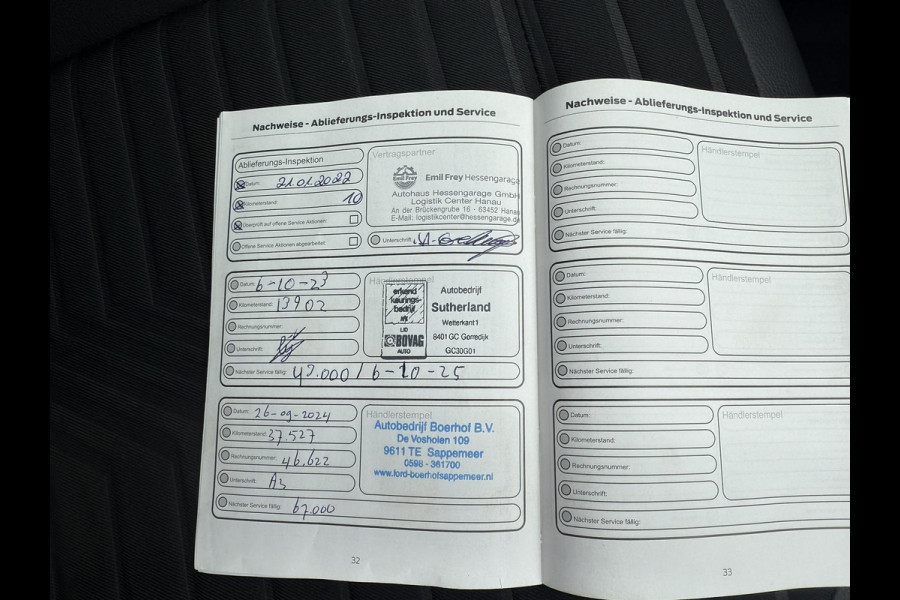 Nachweise - Ablieferungs-Inspektion und Service
Ablieferungs-Inspektion
Datum: 21.01.2022
Kilometerstand: 10
Überprüft auf offene Service Aktionen
Offene Service Aktionen abgearbeitet:
Vertragspartner
Emil Frey Hessengarage
Autohaus Hessengarage GmbH
Logistik Center Hanau
An der Brückengrube 16 - 63452 Hanau
E-Mail: logistikcenter@hessengarage.de
Unterschrift:
Datum: 6-10-23
Kilometerstand: 13902
Rechnungsnummer:
Unterschrift:
Händlerstempel
erkend
keurings-
bedrijf
LID
BOVAG
AUTO
Autobedrijf
Sutherland
Wetterkant 1
8401 GC Gorredijk
GC30G01
Nächster Service fällig: 43.000 / 6-10-25
Datum: 26-09-2024
Kilometerstand: 37.527
Rechnungsnummer: 46.622
Unterschrift:
Händlerstempel
Autobedrijf Boerhof B.V.
De Vosholen 109
9611 TE Sappemeer
0598 - 361700
www.ford-boerhofsappemeer.nl
Nächster Service fällig: 67.000
32
Nachweise - Ablieferungs-Inspektion und Service
Datum:
Kilometerstand:
Rechnungsnummer:
Unterschrift:
Händlerstempel
Nächster Service fällig:
Datum:
Kilometerstand:
Rechnungsnummer:
Unterschrift:
Händlerstempel
Nächster Service fällig:
Datum:
Kilometerstand:
Rechnungsnummer:
Unterschrift:
Händlerstempel
Nächster Service fällig:
33